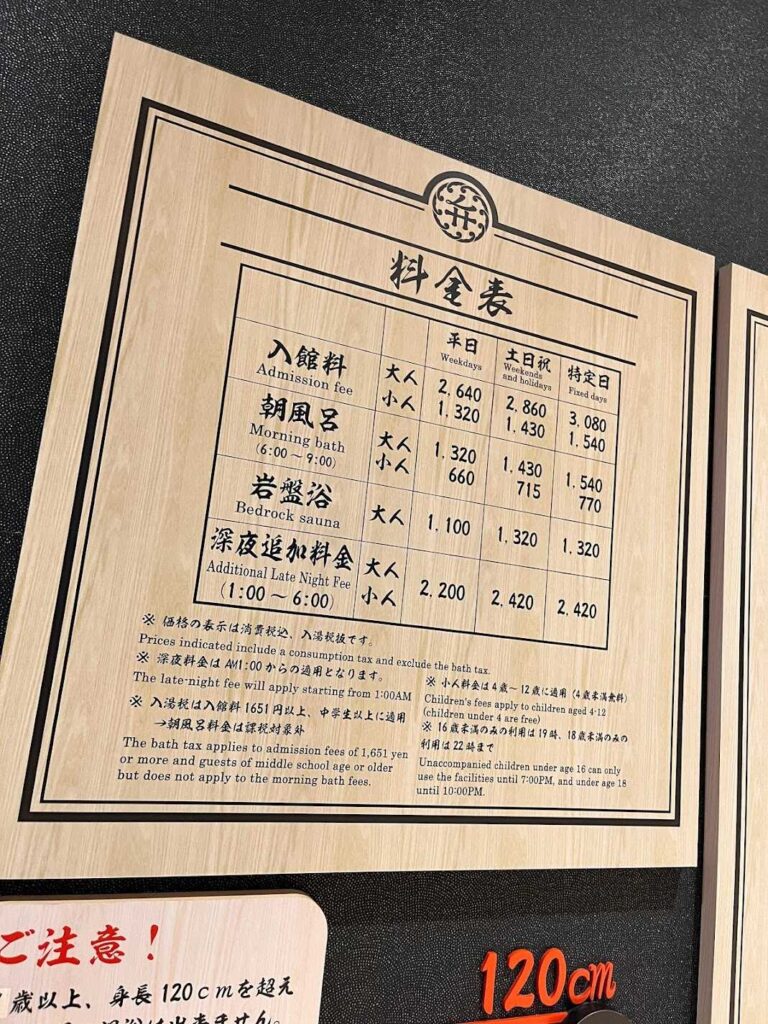 料金表
平日 土日祝 特定日
Weekdays Weekends and holidays Fixed days
入館料 大人 2,640 2,860 3,080
Admission fee 小人 1,320 1,430 1,540
朝風呂 大人 1,320 1,430 1,540
Morning bath 小人 660 715 770
(6:00~9:00)
岩盤浴 大人 1,100 1,320 1,320
Bedrock sauna
深夜追加料金 大人
Additional Late Night Fee 2,200 2,420 2,420
(1:00~6:00) 小人
※ 価格の表示は消費税込、入湯税抜です。
Prices indicated include a consumption tax and exclude the bath tax.
※ 深夜料金はAM1:00からの適用となります。
The late-night fee will apply starting from 1:00AM
※ 入湯税は入館料1651円以上、中学生以上に適用
→朝風呂料金は課税対象外
The bath tax applies to admission fees of 1,651 yen
or more and guests of middle school age or older
but does not apply to the morning bath fees.
※ 小人料金は4歳~12歳に適用(4歳未満無料)
Children's fees apply to children aged 4-12
(children under 4 are free)
※ 16歳未満のみの利用は19時、18歳未満のみの
利用は22時まで
Unaccompanied children under age 16 can only
use the facilities until 7:00PM, and under age 18
until 10:00PM.
ご注意!
歳以上、身長120cmを超え
120cm